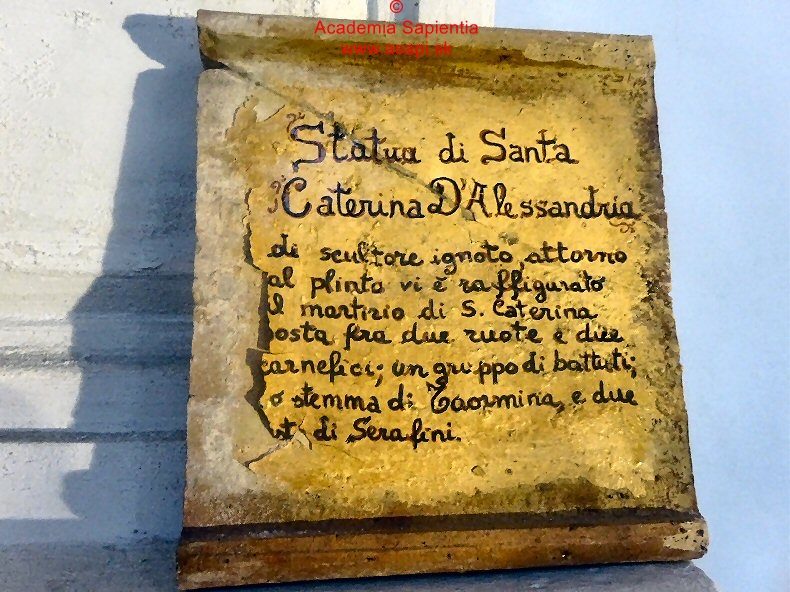 ©
Academia Sapientia
www.asapi.sk
Statua di Santa
Caterina D'Alessandria
di scultore ignoto, attorno
al plinto vi è raffigurato
il martirio di S. Caterina
posta fra due ruote e due
carnefici; un gruppo di battuti;
stemma di Taormina, e due
di Serafini.